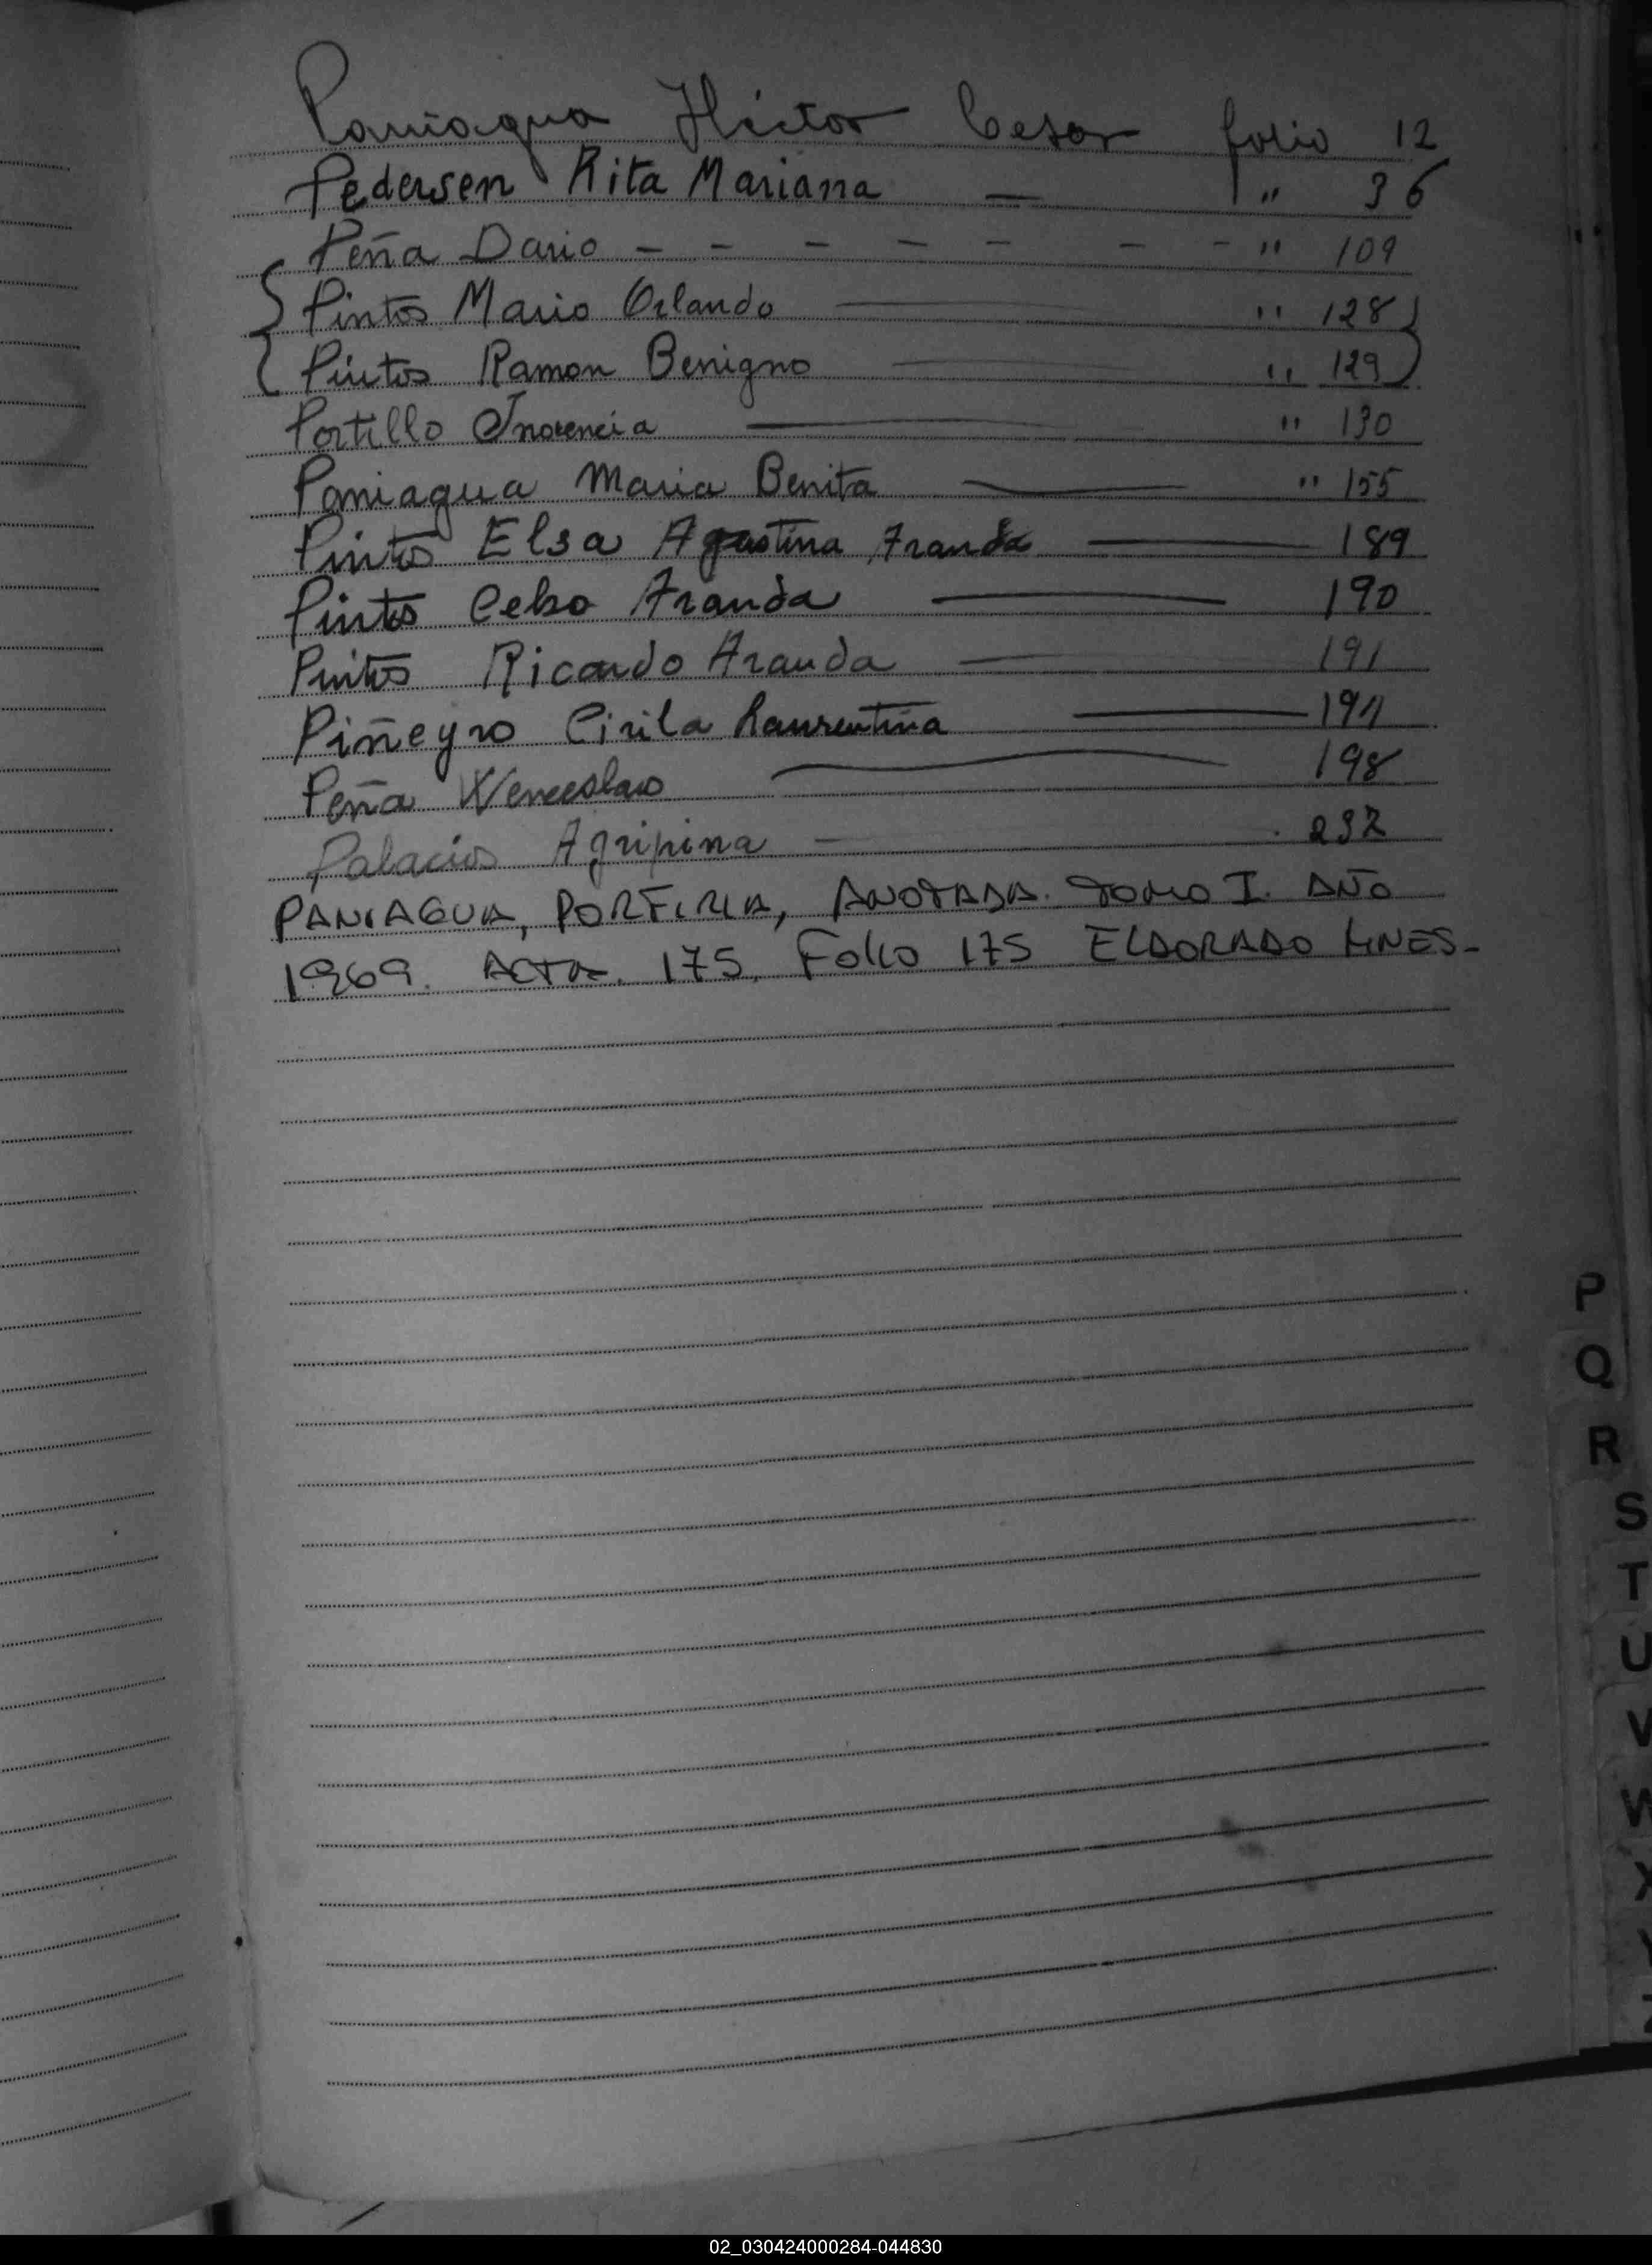 Paniagua Héctor Cesar folio 12
Pedersen Rita Mariana — " 36
Peña Dario - - - - - - - " 109
Pintos Mario Orlando — " 128
Pintos Ramon Benigno — " 129
Portillo Inocencia — " 130
Paniagua Maria Benita — " 155
Pinto Elsa Agustina Aranda — 189
Pinto Celso Aranda — 190
Pintos Ricardo Aranda — 191
Piñeyro Cirila Laurentina —
Peña Wenceslao — 198
Palacios Agripina — 232
PANIAGUA, PORFIRIA, ANOTADA. TOMO I. AÑO
1969. ACTA. 175. FOLIO 175 ELDORADO MNES-
P
Q
R
S
T
U
V
W
X
Y
Z
02_030424000284-044830